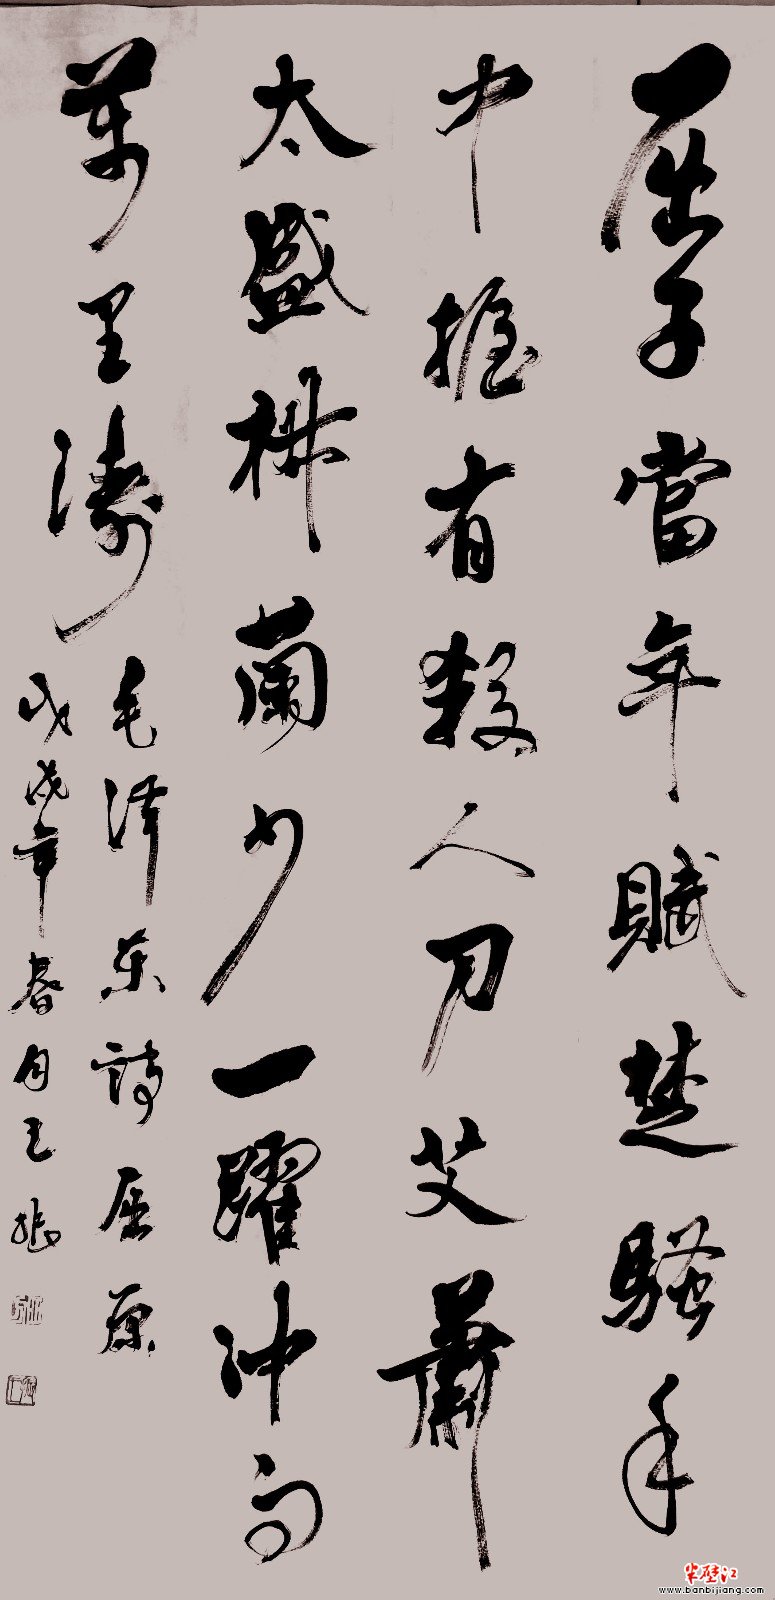 屈子當年賦楚騷手
中握有殺人刀艾蕭
太盛椒蘭少一躍沖向
萬里濤
毛澤東詩屈原
戊戌年春月王
半壁江
www.banbijiang.com